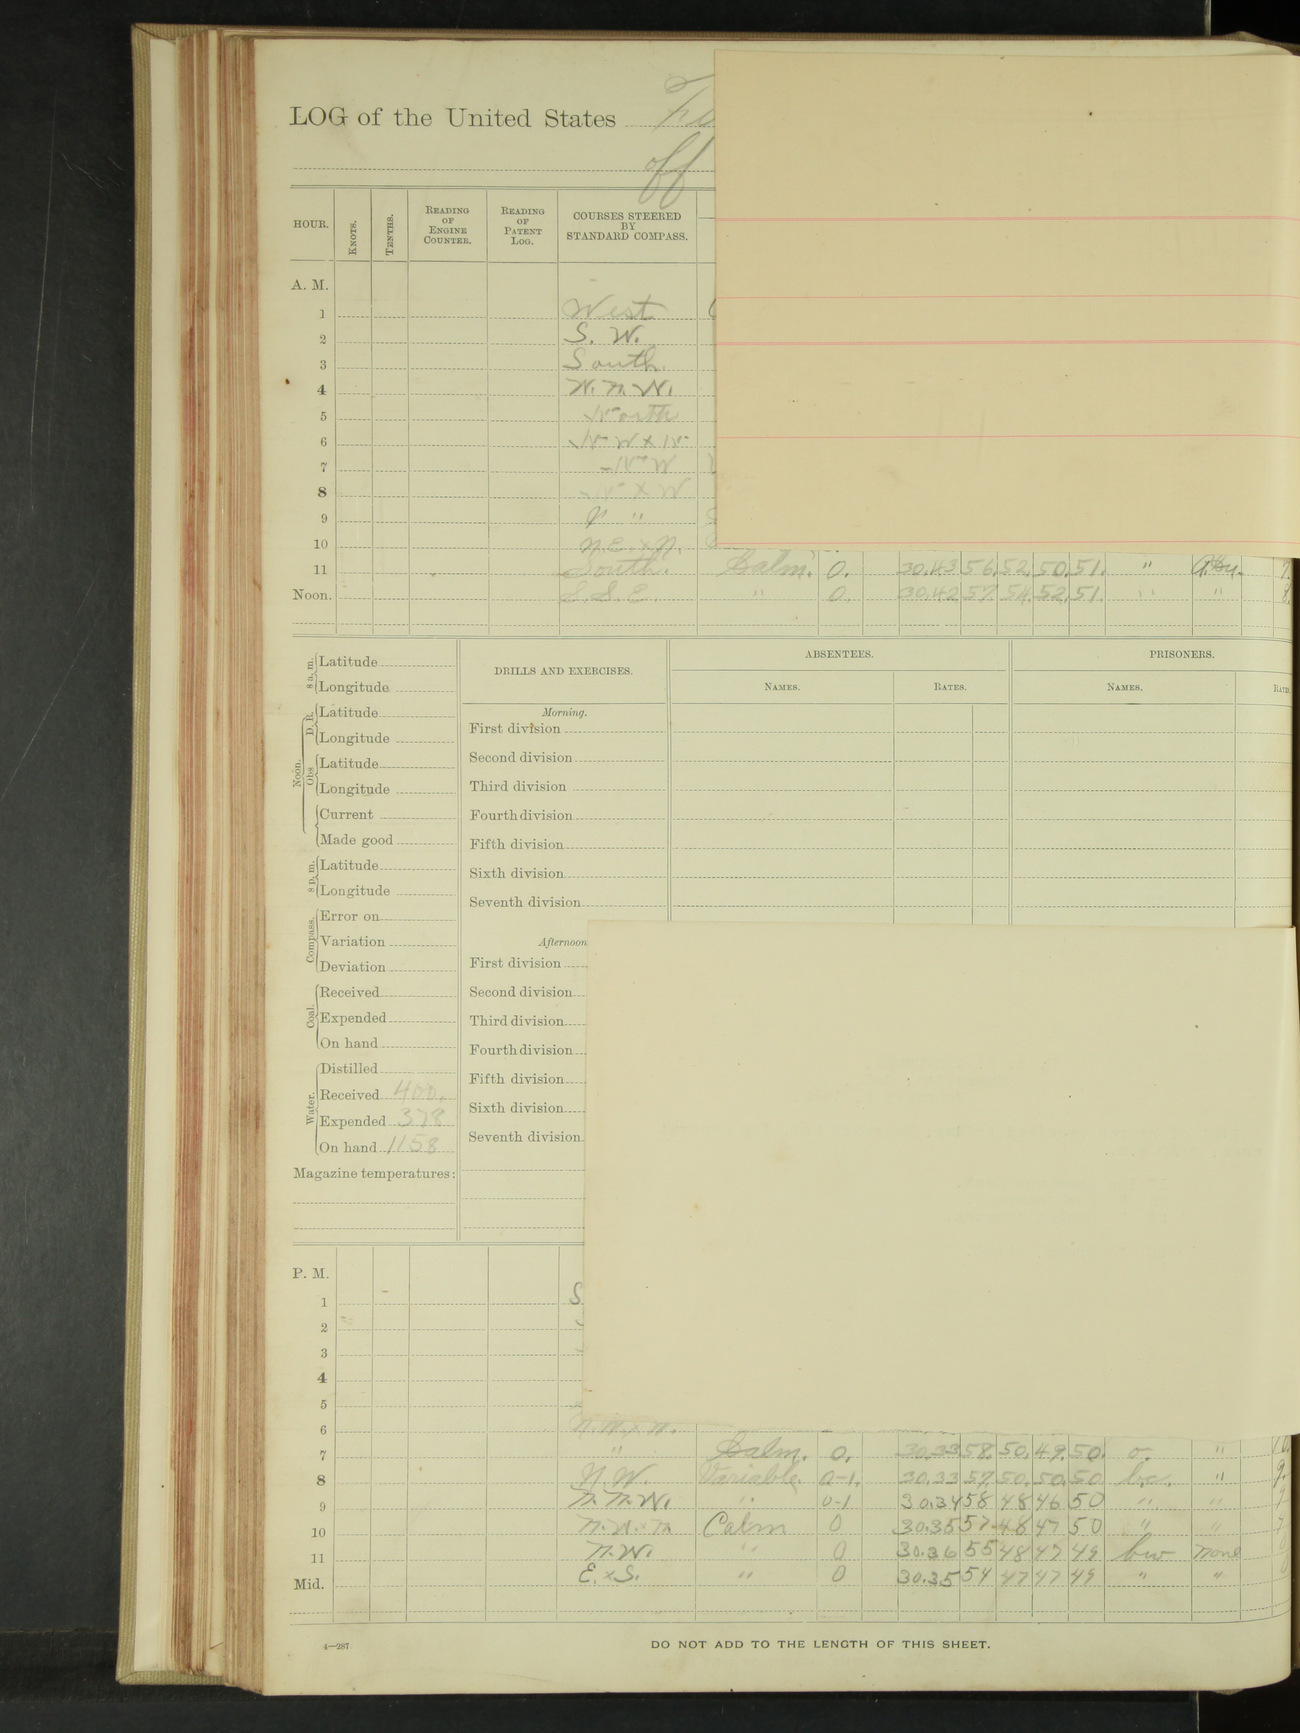 LOG of the United States
off
HOUR. KNOTS. TENTHS. READING OF ENGINE COUNTER. READING OF PATENT LOG. COURSES STEERED BY STANDARD COMPASS.
A. M.
1 West
2 S. W.
3 South.
4 W. N. W.
5 North
6 NW x N
7 NW
8 N x W
9 "
10 N.E. x N.
11 South. Calm. 0. 30.43 56. 52. 50. 51. "
Noon. S. S. E. " 0. 30.42 57. 54. 52. 51. " "
8 a. m. Latitude
Longitude
Noon. D. R. Latitude
Longitude
Obs Latitude
Longitude
Current
Made good
8 p. m. Latitude
Longitude
Compass. Error on
Variation
Deviation
Coal. Received
Expended
On hand
Water. Distilled
Received 400.
Expended 378
On hand 1158
Magazine temperatures:
DRILLS AND EXERCISES.
Morning.
First division
Second division
Third division
Fourth division
Fifth division
Sixth division
Seventh division
Afternoon
First division
Second division
Third division
Fourth division
Fifth division
Sixth division
Seventh division
ABSENTEES.
NAMES. RATES.
PRISONERS.
NAMES.
P. M.
1 S
2
3
4
5
6
7 " Calm. 0. 30.33 58. 50. 49. 50. o. "
8 N.W. Variable 0-1. 30.33 57. 50. 50. 50 bc. "
9 N. N. W. " 0-1 30.34 58 48 46 50 " "
10 N.W. x N Calm 0 30.35 57 48 47 50 " "
11 N.W. " 0 30.36 55 48 47 49 bw none
Mid. E. x S. " 0 30.35 54 47 47 49 " "
4—287
DO NOT ADD TO THE LENGTH OF THIS SHEET.